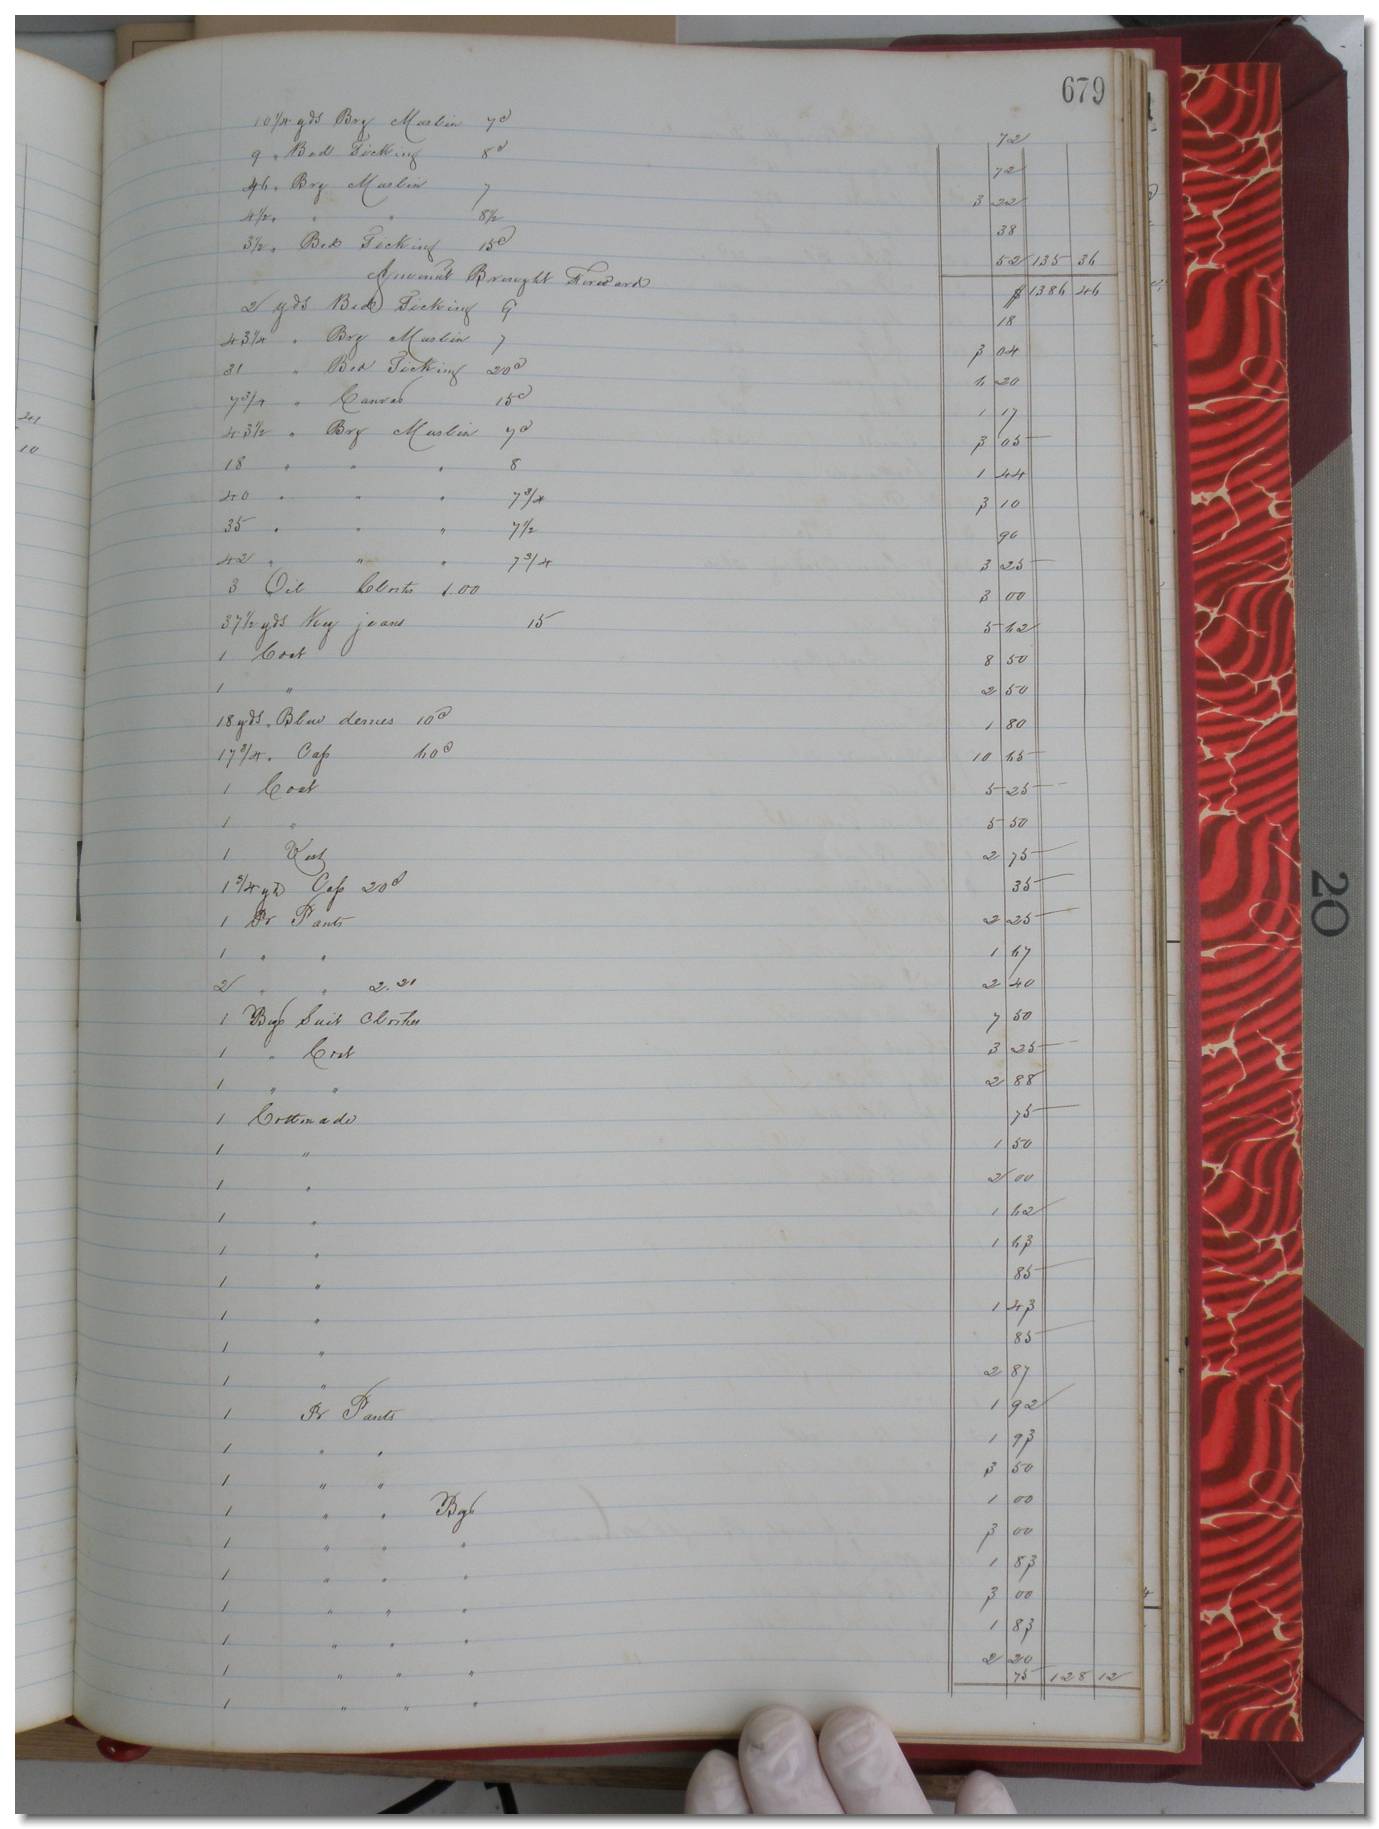 679
10 1/4 yds Brg Muslin 7c 72
9 " Bed Ticking 8c 72
46 " Brg Muslin 7 3 22
4 1/2 " " " 8 1/2 38
3 1/2 " Bed Ticking 15c 52 135 36
Amount Brought Forward $ 1386 46
2 yds Bed Ticking 9 18
43 1/4 " Brg Muslin 7 3 04
31 " Bed Ticking 20c 6 20
7 3/4 " Canvas 15c 1 17
43 1/2 " Brg Muslin 7c 3 05
18 " " " 8 1 44
40 " " " 7 3/4 3 10
35 " " " 7 1/2 90
42 " " " 7 3/4 3 25
3 Oil Cloths 1.00 3 00
37 1/2 yds jeans 15 5 62
1 Coat 8 50
1 " 2 50
18 yds " Blue 10c 1 80
17 3/4 " Cass 60c 10 65
1 Coat 5 25
1 " 5 50
1 Vest 2 75
1 3/4 yds Cass 20c 35
1 Pr Pants 2 25
1 " " 1 67
2 " " 2 40
1 Boys Suit Clothes 7 50
1 " Coat 3 25
1 " " 2 88
1 Cottonade 75
1 " 1 50
1 " 2 00
1 " 1 62
1 " 1 63
1 " 85
1 " 1 43
1 " 85
1 " 2 87
1 Pr Pants 1 92
1 " " 1 93
1 " " 3 50
1 " " Boys 1 00
1 " " " 3 00
1 " " " 1 83
1 " " " 3 00
1 " " " 1 83
1 " " " 2 20
1 " " " 75 128 12
21
10
20